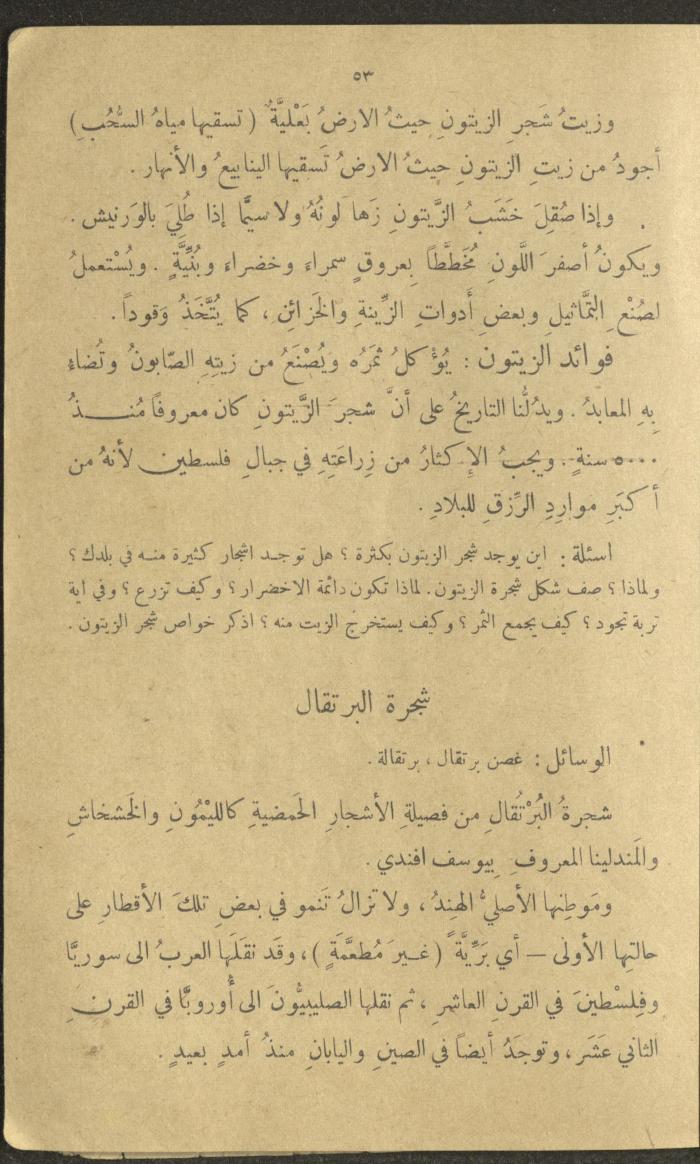 ٥٣
وزيتُ شَجرِ الزيتونِ حيثُ الارضُ بَعْليَّةٌ (تسقيها مياهُ السُّحُبِ)
أجودُ من زيتِ الزيتونِ حيثُ الارضُ تَسقيها الينابيعُ والأنهار .
وإذا صُقِلَ خَشَبُ الزَّيتونِ زَها لونُهُ ولا سيَّما إذا طُلِيَ بالوَرنيش .
ويكونُ أصفرَ اللَّونِ مُخَطَّطاً بِعروقٍ سمراءَ وخضراءَ وبُنِّيَّةٍ . ويُسْتعملُ
لصُنْعِ التَّماثيل وبعضِ أدواتِ الزّينةِ والخَزائنِ ، كما يُتَّخَذُ وَقوداً .
فوائد الزيتون : يُؤْكلُ ثمَرُه ويُصْنَعُ من زيتِهِ الصّابونُ وتُضاءُ
بِهِ المعابدُ . ويدُلُّنا التاريخُ على أنَّ شجرَ الزَّيتونِ كان معروفاً مُنــذُ
٥٠٠٠ سنةٍ . ويجبُ الإكثارُ من زِراعَتِهِ في جبالِ فلسطين لأنهُ من
أكبَرِ مواردِ الرّزقِ للبلادِ .
اسئلة : اين يوجد شجر الزيتون بكثرة ؟ هل توجـد اشجار كثيرة منـه في بلدك ؟
ولماذا ؟ صف شكل شجرة الزيتون . لماذا تكون دائمة الاخضرار ؟ وكيف تزرع ؟ وفي اية
تربة تجود ؟ كيف يجمع الثمر ؟ وكيف يستخرج الزيت منه ؟ اذكر خواص شجر الزيتون .
شجرة البرتقال
الوسائل : غصن برتقال ، برتقالة .
شجرةُ البُرْتُقالِ من فصيلةِ الأشجارِ الحَمضيةِ كالليْمُونِ والخَشخاشِ
والمَندلينا المعروفِ بيوسف افندي .
ومَوطِنها الأصليُّ الهِندُ ، ولا تزالُ تَنمو في بعضِ تلكَ الأقطارِ على
حالتِها الأولى – أي بَرِّيَّةً (غيرَ مُطعَّمَةٍ) ، وقَد نقَلَها العربُ الى سوريَّا
وفِلسْطينَ في القرنِ العاشرِ ، ثم نقلها الصليبيُّونَ الى أُوروبَّا في القرنِ
الثاني عَشَر ، وتوجَدُ أيضاً في الصينِ واليابانِ منذُ أمدٍ بعيدٍ .